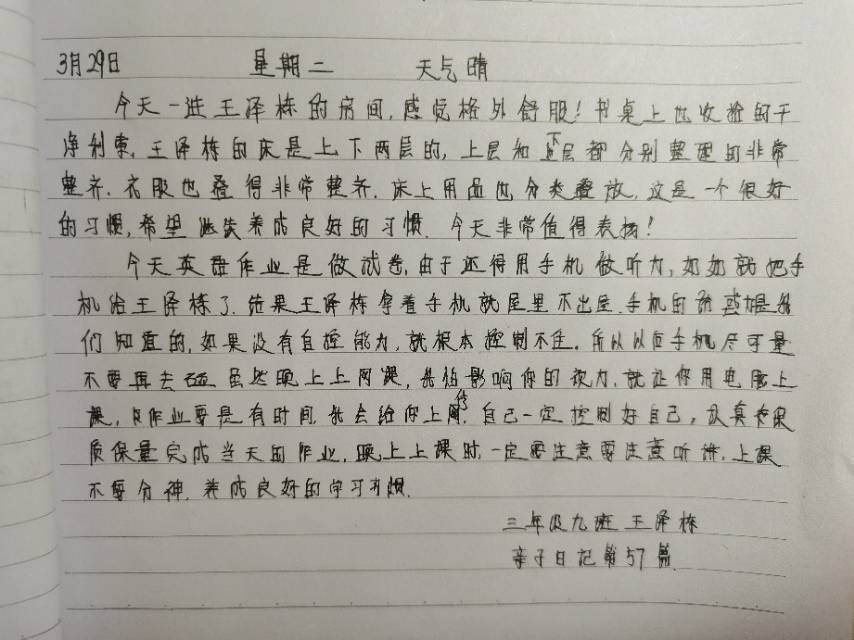 3月29日 星期二 天气晴
今天一进王泽栋的房间,感觉格外舒服!书桌上也收拾的干
净利索,王泽栋的床是上下两层的,上层和下层都分别整理的非常
整齐.衣服也叠得非常整齐.床上用品也分类叠放,这是一个很好
的习惯,希望 养成良好的习惯.今天非常值得表扬!
今天英语作业是做试卷,由于还得用手机做听力,奶奶就把手
机给王泽栋了.结果王泽栋拿着手机就屋里不出屋.手机的诱惑都是我
们知道的,如果没有自控能力,就根本控制不住.所以以后手机尽可量
不要再去 虽然晚上上网课,我怕影响你的视力,就让你用电脑上
课,只作业要是有时间.我会给你上传.自己一定控制好自己,认真 保
质保量完成当天的作业.晚上上课时,一定要注意要注意听讲.上课
不要分神.养成良好的学习习惯.
三年级九班王泽栋
亲子日记第57篇.